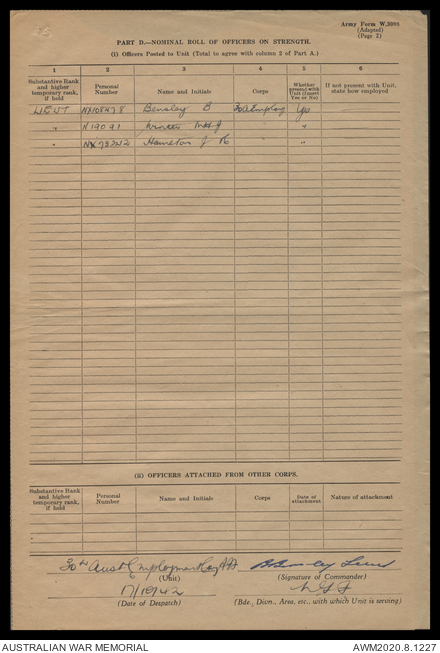 Army Form W.3008
(Adapted)
(Page 2)
PART D.—NOMINAL ROLL OF OFFICERS ON STRENGTH.
(i) Officers Posted to Unit (Total to agree with column 2 of Part A.)
1 2 3 4 5 6
Substantive Rank and higher temporary rank, if held Personal Number Name and Initials Corps Whether present with Unit (Insert Yes or No) If not present with Unit, state how employed
LIEUT NX108478 Bensley B Yes
" N19091 "
" NX73242 Hamilton J R "
(ii) OFFICERS ATTACHED FROM OTHER CORPS.
Substantive Rank and higher temporary rank, if held Personal Number Name and Initials Corps Date of attachment Nature of attachment
Aust Employment Coy
(Unit)
B Bensley Lieut
(Signature of Commander)
17/10/42
(Date of Despatch)
(Bde., Divn., Area, etc., with which Unit is serving)
AUSTRALIAN WAR MEMORIAL
AWM2020.8.1227